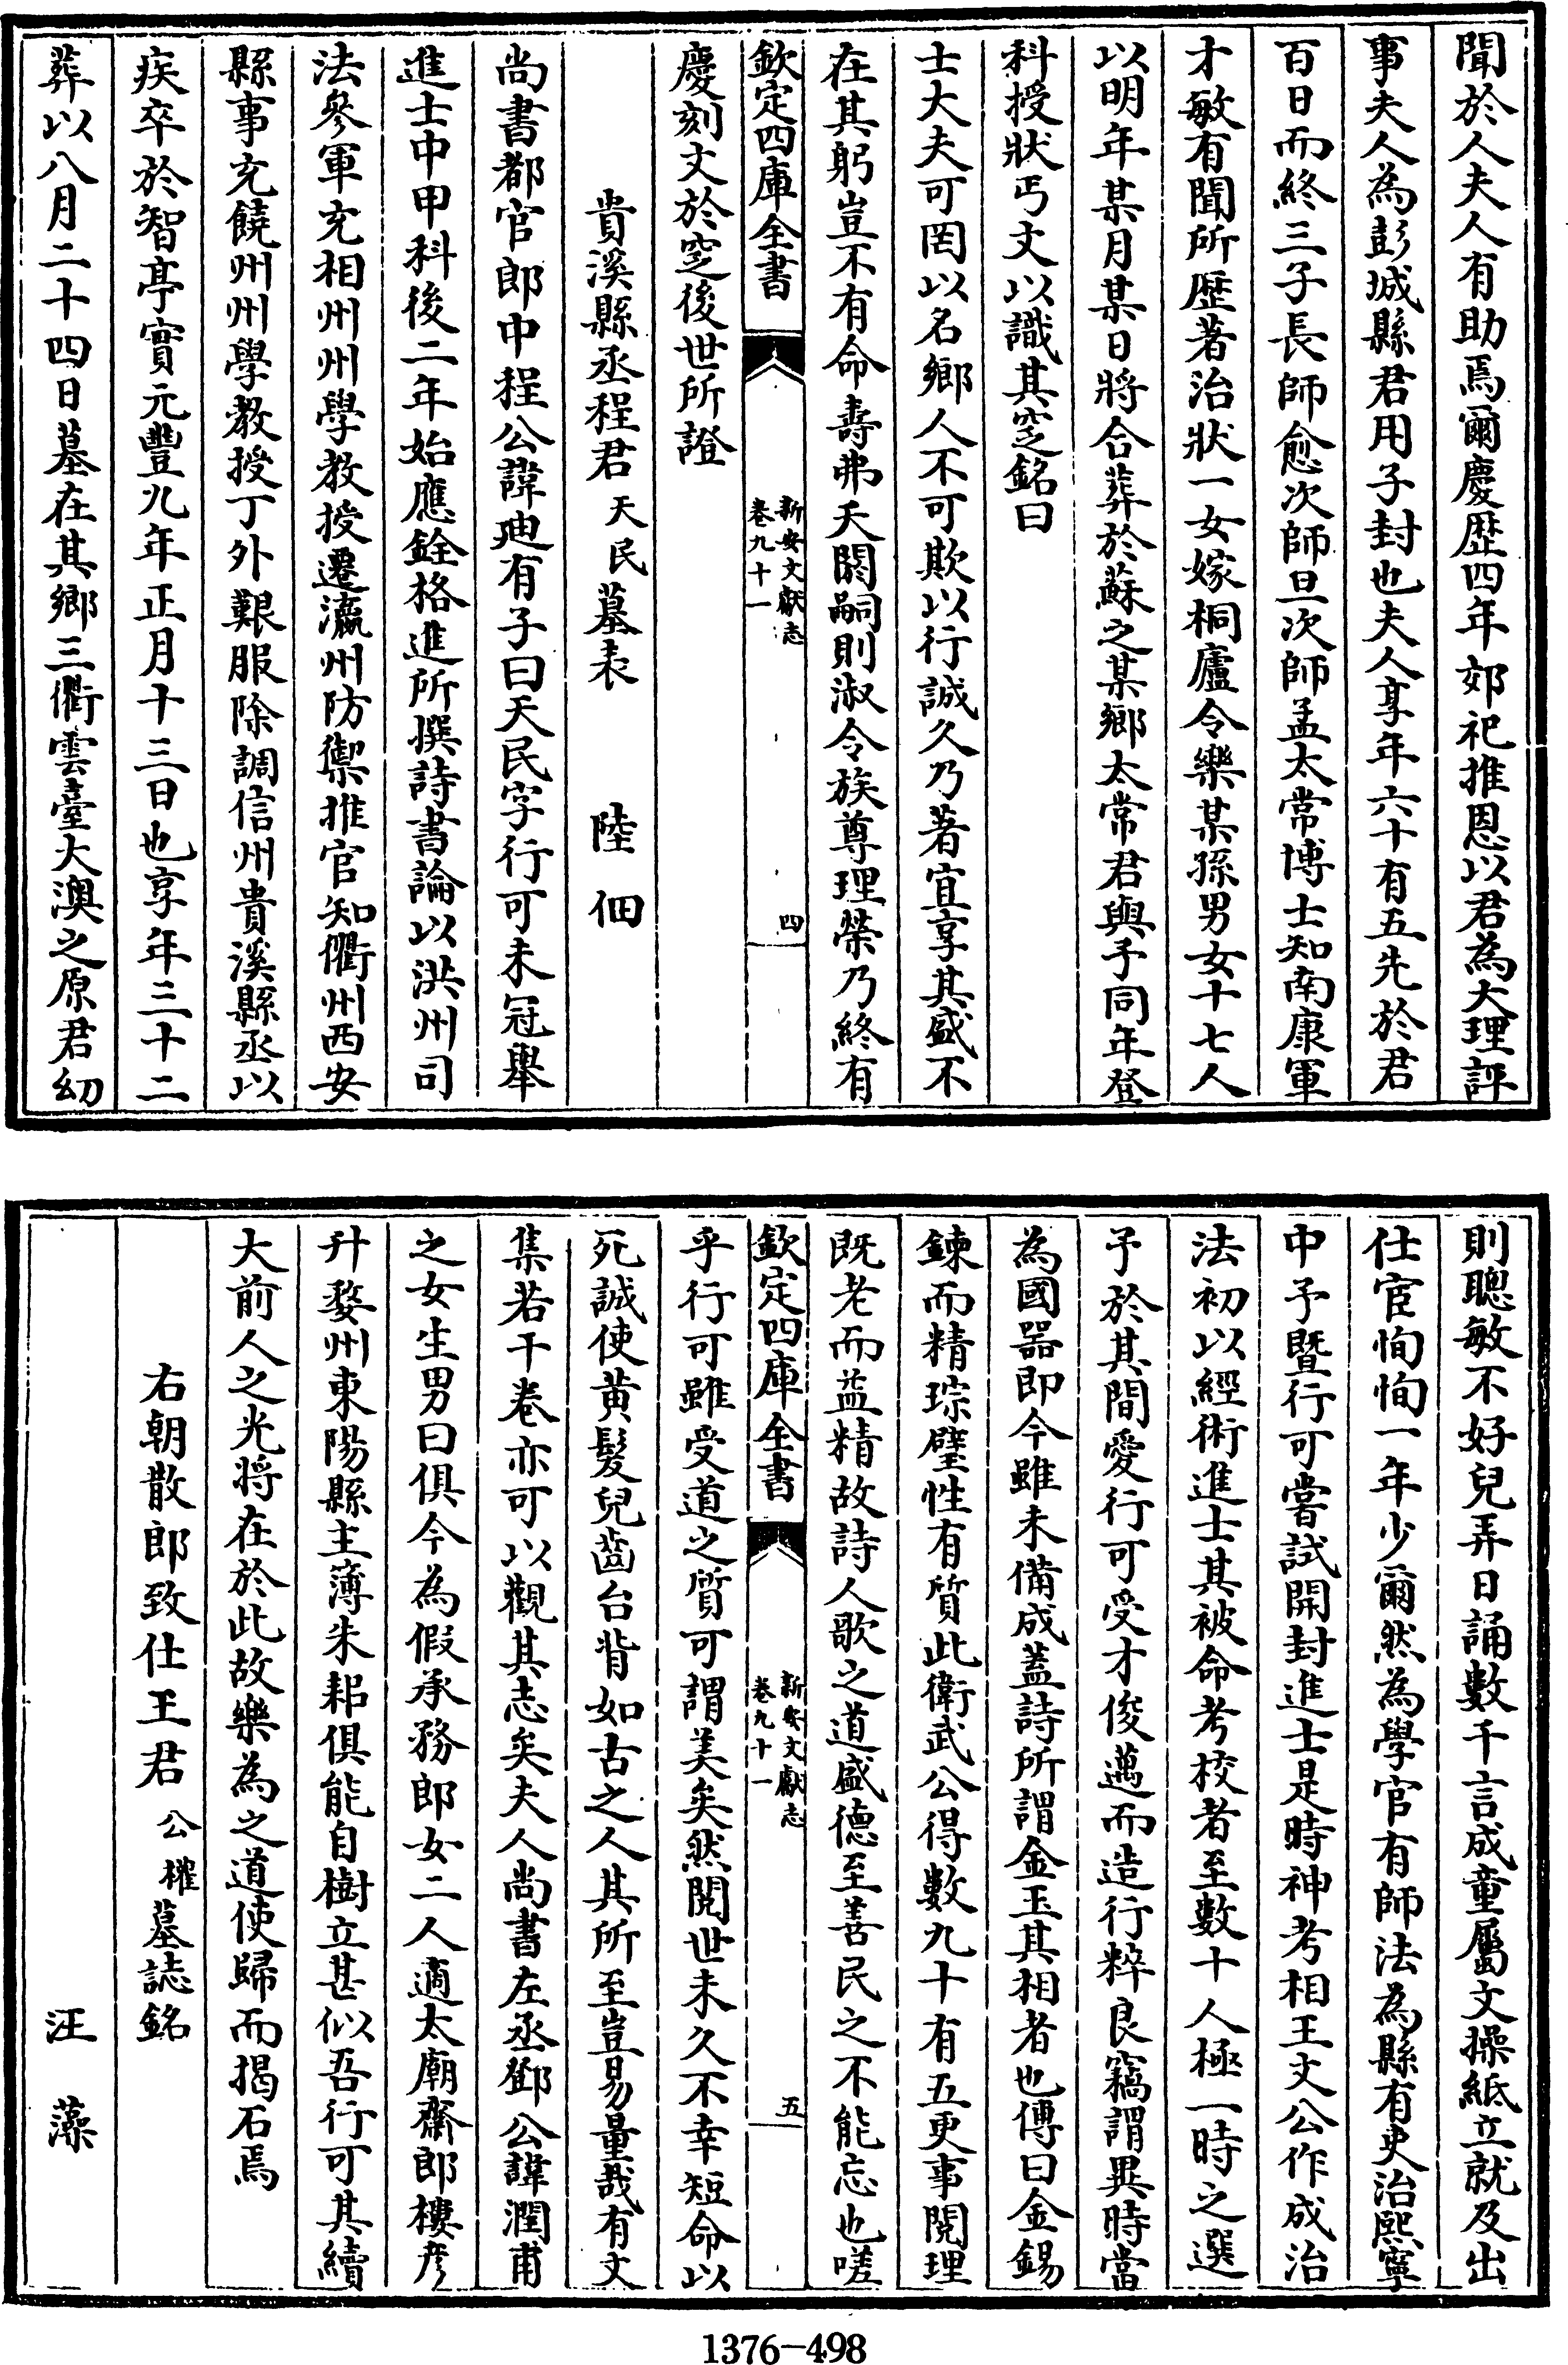 聞於人夫人有助焉爾慶歴四年郊祀推恩以君為大理評
事夫人為彭城縣君用子封也夫人享年六十有五先於君
百日而終三子長師愈次師旦次師孟太常博士知南康軍
才敏有聞所歴著治狀一女嫁桐廬令樂某孫男女十七人
以明年某月某日將合葬於蘇之某鄉太常君與予同年登
科授狀丐文以識其窆銘曰
士大夫可罔以名鄉人不可欺以行誠久乃著宜享其盛不
在其躬豈不有命壽弗夭閼嗣則淑令族尊理榮乃終有
欽定四庫全書
新安文獻志
卷九十一
四
慶刻文於窆後世所證
貴溪縣丞程君天民墓表 陸佃
尚書都官郎中程公諱廸有子曰天民字行可未冠舉
進士中甲科後二年始應銓格進所撰詩書論以洪州司
法參軍充相州州學教授遷瀛州防禦推官知衢州西安
縣事充饒州州學教授丁外艱服除調信州貴溪縣丞以
疾卒於智亭實元豐九年正月十三日也享年三十二
葬以八月二十四日墓在其鄉三衢雲臺大澳之原君幼
則聰敏不好兒弄日誦數千言成童屬文操紙立就及出
仕宦恂恂一年少爾然為學官有師法為縣有吏治熙寧
中予暨行可嘗試開封進士是時神考相王文公作成治
法初以經術進士其被命考校者至數十人極一時之選
予於其間愛行可受才俊邁而造行粹良竊謂異時當
為國器即今雖未備成蓋詩所謂金玉其相者也傳曰金錫
鍊而精琮璧性有質此衛武公得數九十有五更事閱理
既老而益精故詩人歌之道盛德至善民之不能忘也嗟
欽定四庫全書
新安文獻志
卷九十一
五
乎行可雖受道之質可謂美矣然閱世未久不幸短命以
死誠使黄髮兒齒台背如古之人其所至豈易量哉有文
集若干卷亦可以觀其志矣夫人尚書左丞鄧公諱潤甫
之女生男曰俱今為假承務郎女二人適太廟齋郎樓彦
升婺州東陽縣主簿朱耜俱能自樹立甚似吾行可其續
大前人之光将在於此故樂為之道使歸而揭石焉
右朝散郎致仕王君公㩁墓誌銘
汪藻
1376-498